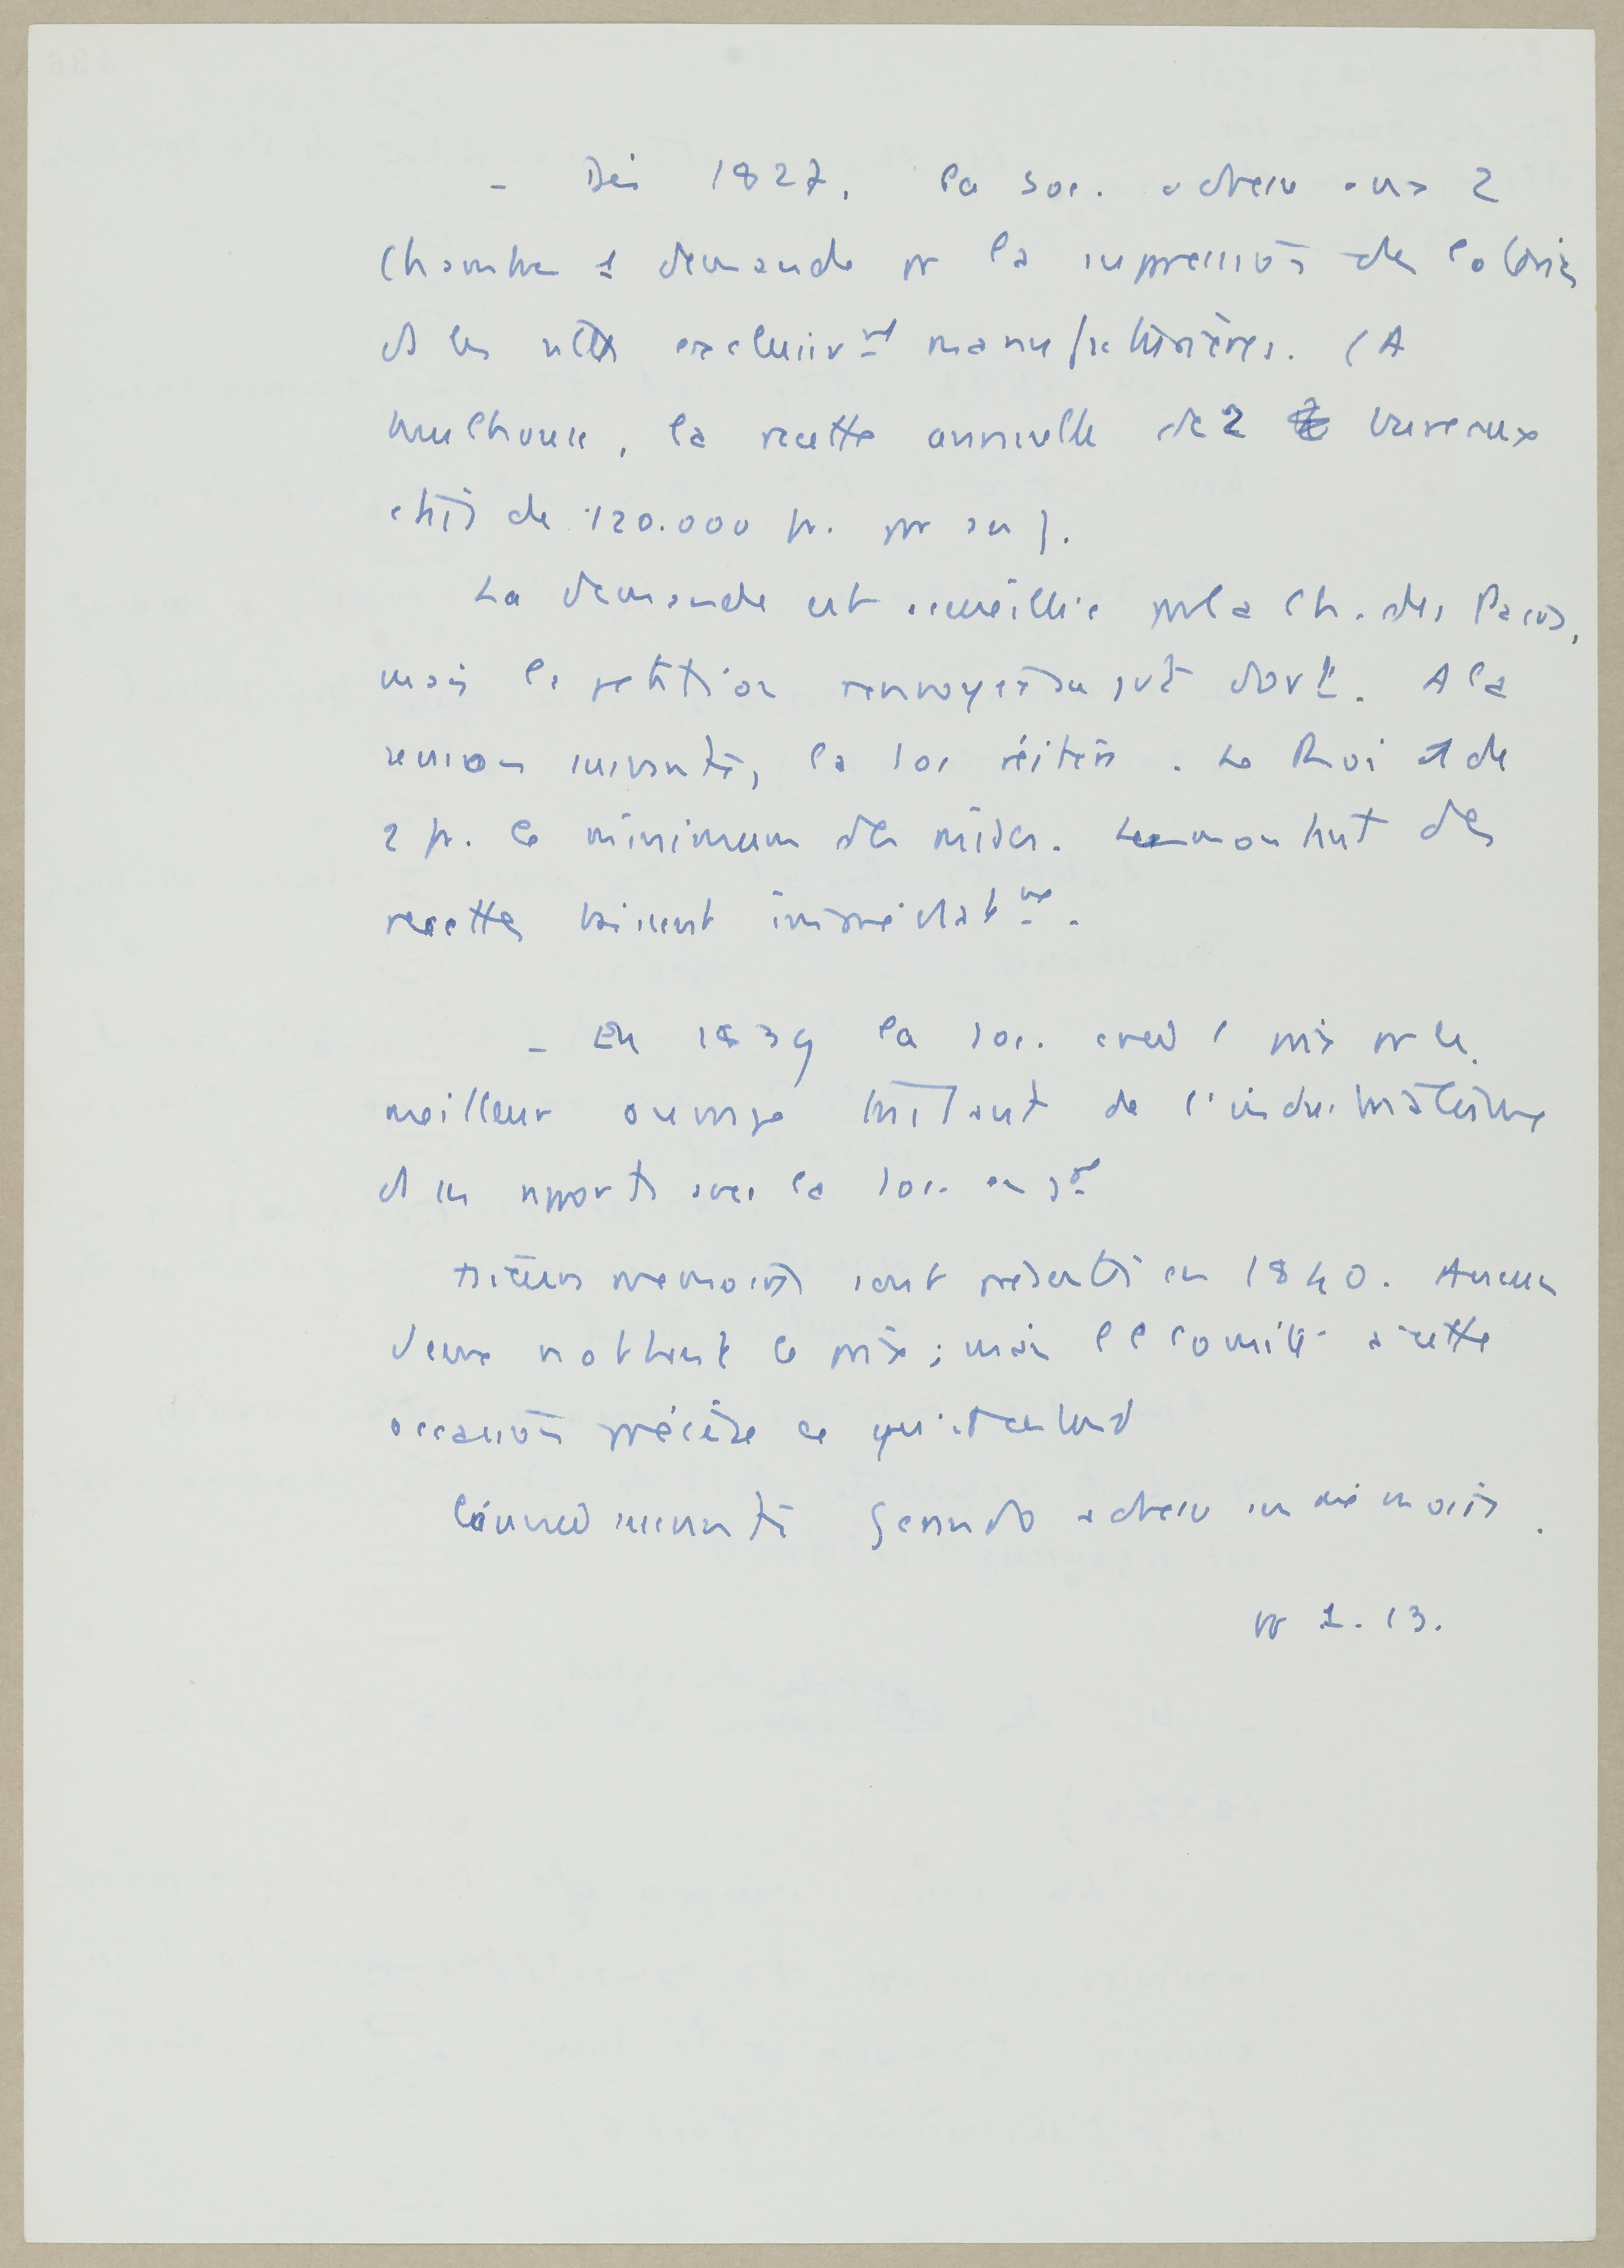 - Dès 1827, la soc. adresse aux 2
Chambres 1 demande pr la suppression des loteries
ds les villes exclusivnt manufacturières. (A
Mulhouse, la recette annuelle de 2 bureaux
était de 120.000 fr. par an).
La demande est accueillie par la Ch. des Pairs,
mais la pétition renvoyée au
session suivante, la soc réitère. Le Roi de
2 fr. le minimum des mises. Le montant des
recettes baissent immédiatmt.
- En 1839 la soc. créé 1 prix pr le
meilleur ouvrage traitant de l'industrialisme
ds ses rapports avec la soc. en gal
mémoires sont présentés en 1840. Aucun
d'eux n'obtient le prix; mais le comité à cette
occasion précise ce qu'il entend
L'année suivante Gerando adresse un mémoire.
W 1. 13.